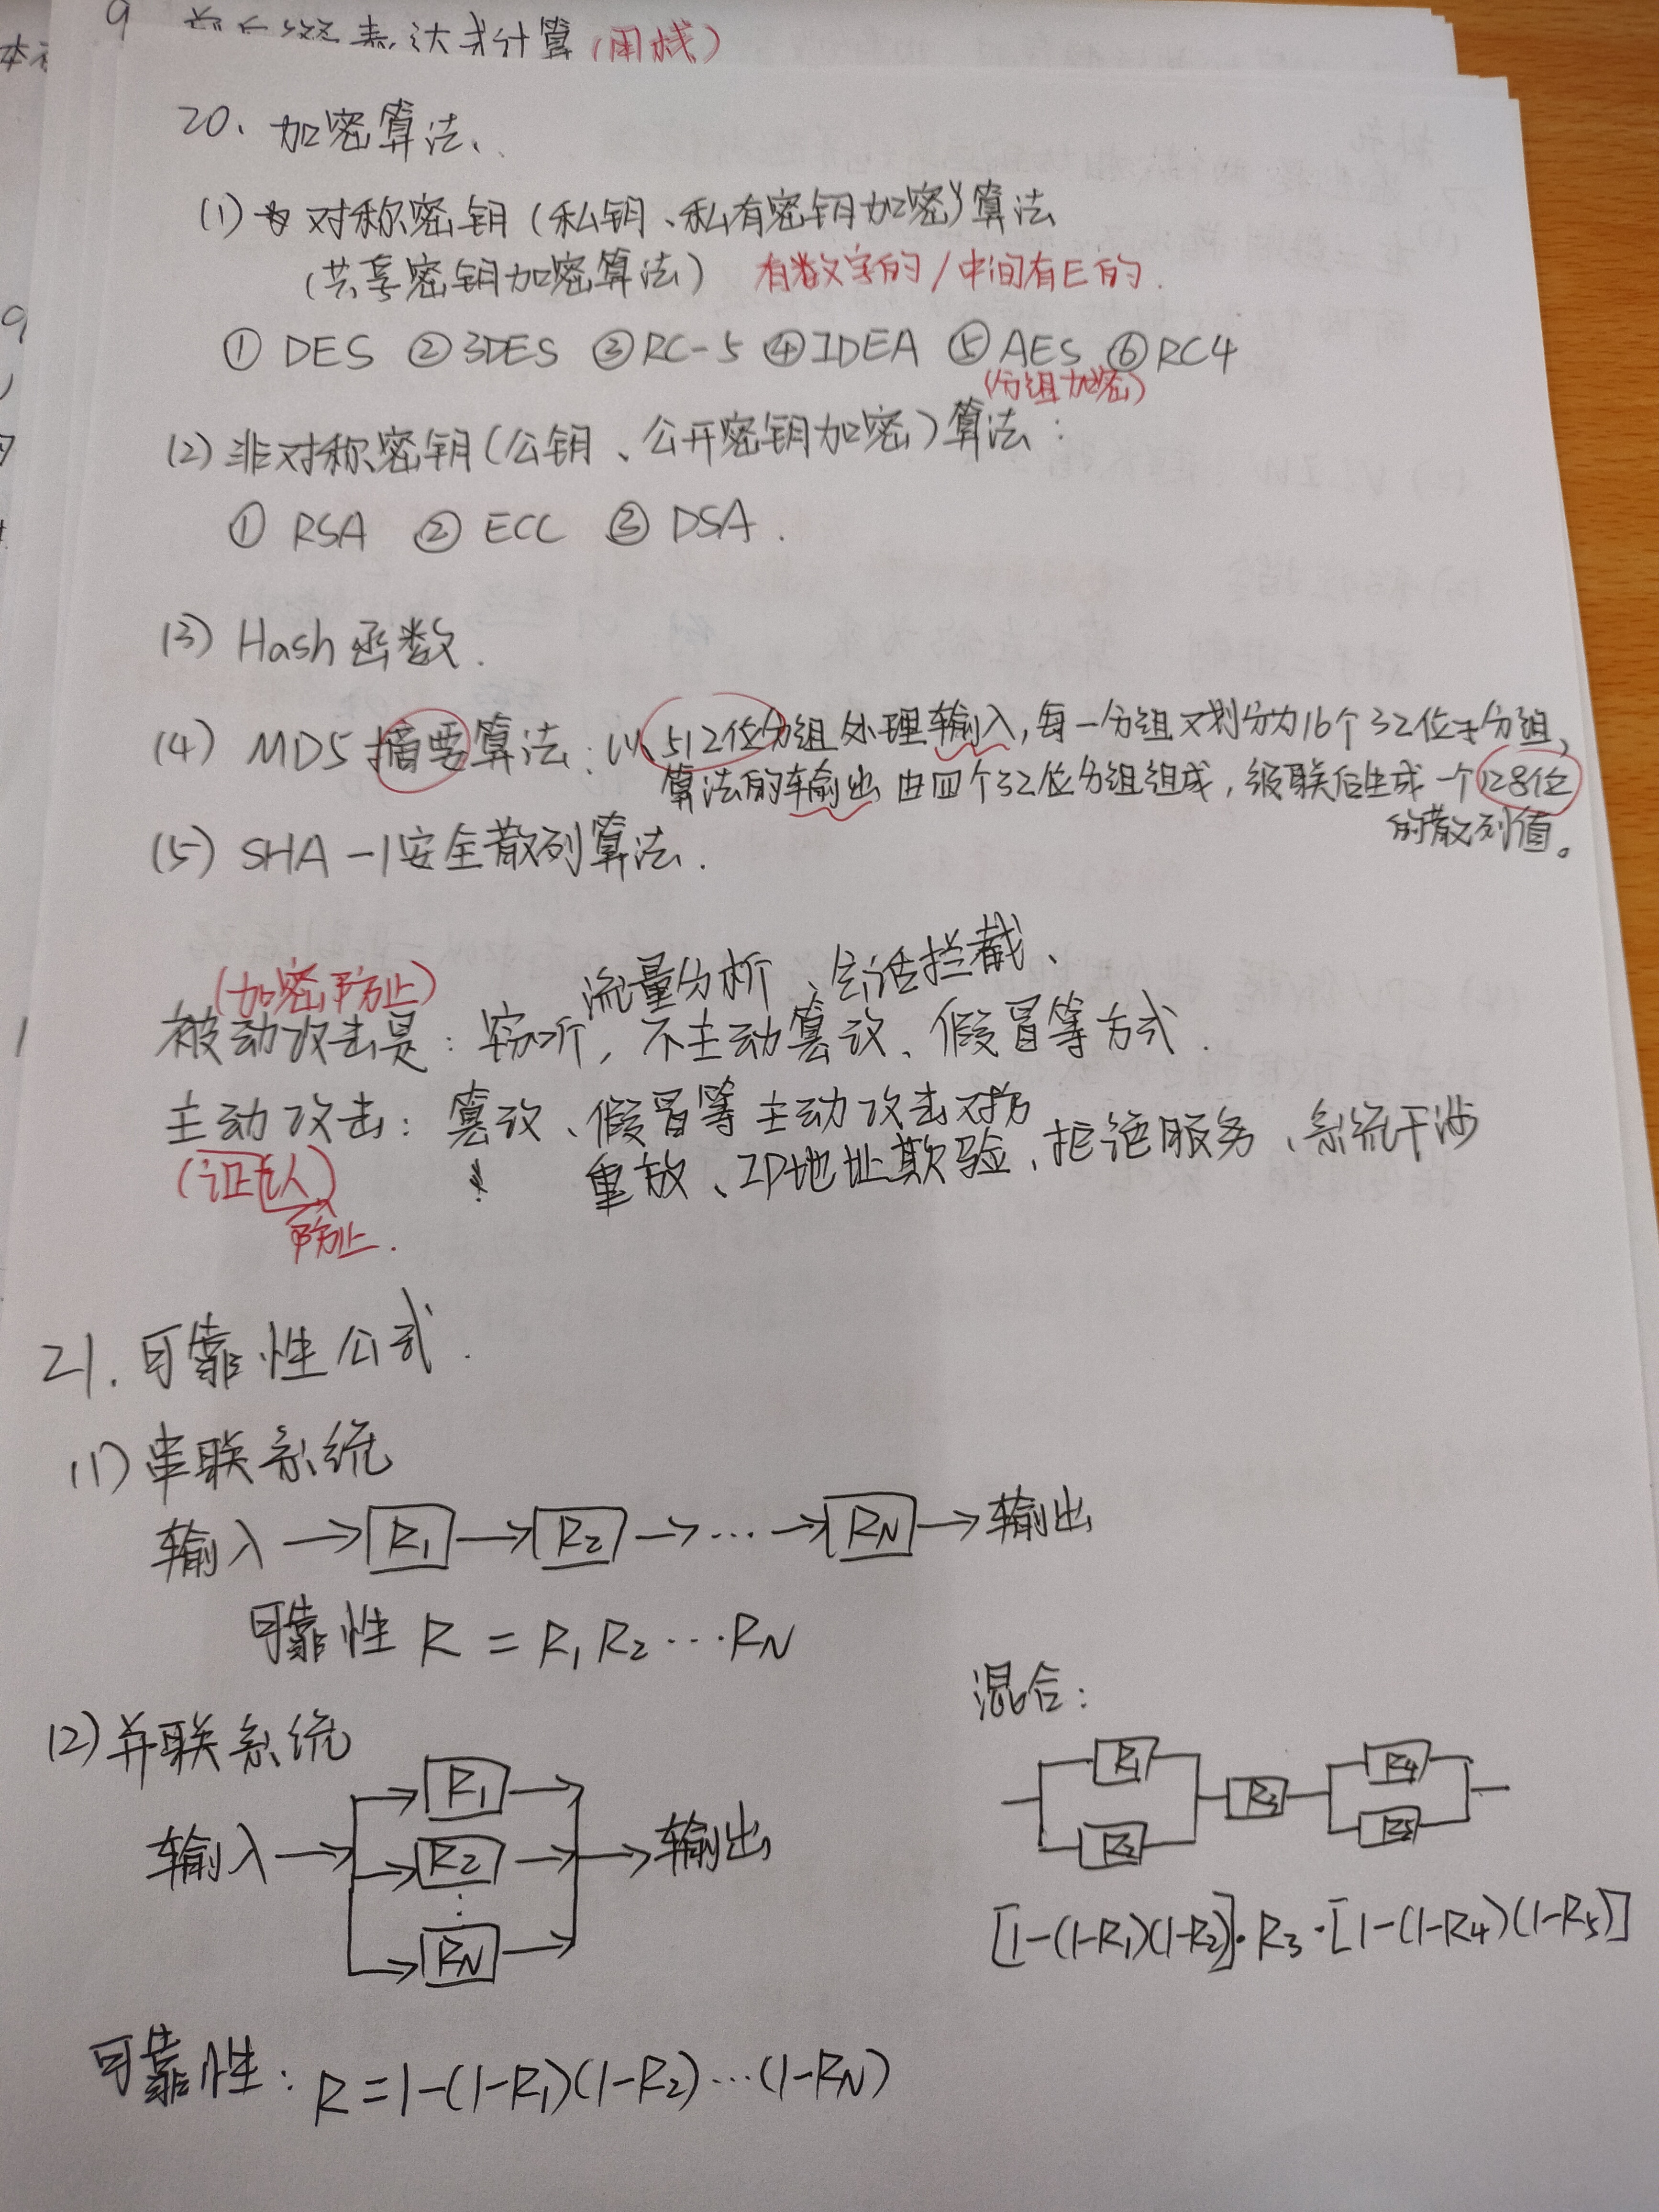 表达式计算(用栈)
20、加密算法、
(1) 对称密钥(私钥、私有密钥加密)算法
(共享密钥加密算法) 有数字的/中间有E的.
① DES ② 3DES ③ RC-5 ④ IDEA ⑤ AES ⑥ RC4
(分组加密)
(2) 非对称密钥(公钥、公开密钥加密)算法:
① RSA ② ECC ③ DSA.
(3) Hash函数.
(4) MD5摘要算法: 以512位分组处理输入,每一分组又划分为16个32位子分组,
算法的输出由四个32位分组组成,级联后生成一个128位
的散列值。
(5) SHA-1安全散列算法.
(加密防止) 流量分析、会话拦截、
被动攻击是: 窃听,不主动篡改、假冒等方式.
主动攻击: 篡改、假冒等主动攻击对方
(认证) 重放、IP地址欺骗、拒绝服务、系统干涉
防止.
21.可靠性公式.
(1) 串联系统
输入 → R1 → R2 → ··· → RN → 输出
可靠性 R = R1 R2 ··· RN
混合:
(2) 并联系统
R1
输入 R2 输出
RN
R1 R4
R3
R2 R5
[1-(1-R1)(1-R2)]·R3·[1-(1-R4)(1-R5)]
可靠性: R=1-(1-R1)(1-R2)···(1-RN)